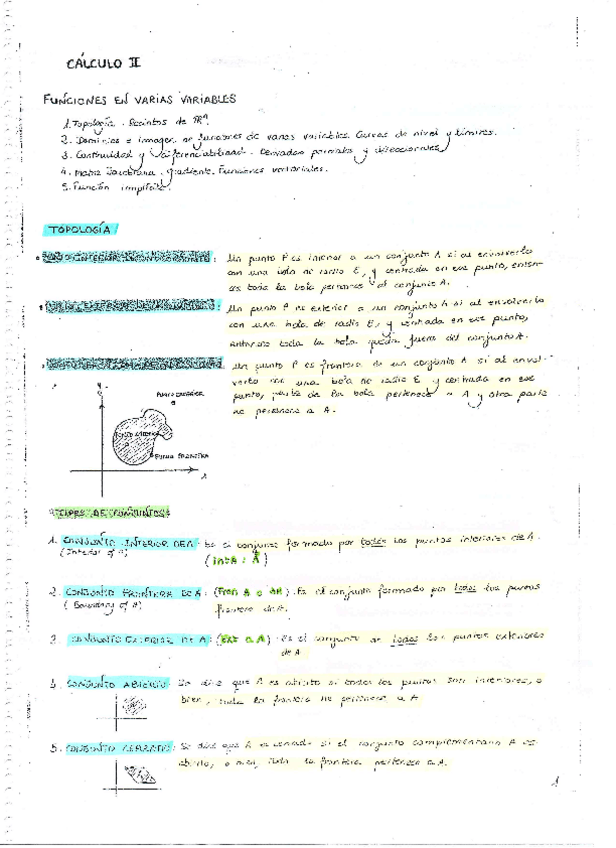 CÁLCULO II
FUNCIONES EN VARIAS VARIABLES
1. Topología. Recintos de ℝⁿ.
2. Dominios e imagen de funciones de varias variables. Curvas de nivel y límites.
3. Continuidad y diferenciabilidad. Derivadas parciales y direccionales
4. Matriz Jacobiana. Gradiente. Funciones vectoriales.
5. Función implícita.
TOPOLOGÍA
: Un punto P es interior a un conjunto A si al envolverlo
con una bola de radio E, y centrada en ese punto, enton-
ces toda la bola pertenece al conjunto A.
: Un punto P es exterior a un conjunto A si al envolverlo
con una bola de radio E, y centrada en ese punto,
entonces toda la bola queda fuera del conjunto A.
Un punto P es frontera de un conjunto A si al envol-
verlo con una bola de radio E y centrada en ese
punto, parte de la bola pertenece a A y otra parte
no pertenece a A.
PUNTO EXTERIOR
PUNTO INTERIOR
PUNTO FRONTERA
TIPOS DE CONJUNTOS
1. CONJUNTO INTERIOR DE A: Es el conjunto formado por todos los puntos interiores de A.
(Interior of A) (Int A : Å)
2. CONJUNTO FRONTERA DE A: (Fron A o ∂A). Es el conjunto formado por todos los puntos
(Boundary of A) frontera de A.
3. CONJUNTO EXTERIOR DE A: (Ext A). Es el conjunto de todos los puntos exteriores
de A
4. CONJUNTO ABIERTO: Se dice que A es abierto si todos los puntos son interiores, o
bien, toda la frontera no pertenece a A.
5. CONJUNTO CERRADO: Se dice que A es cerrado si el conjunto complementario A es
abierto, o bien, toda la frontera pertenece a A.
1